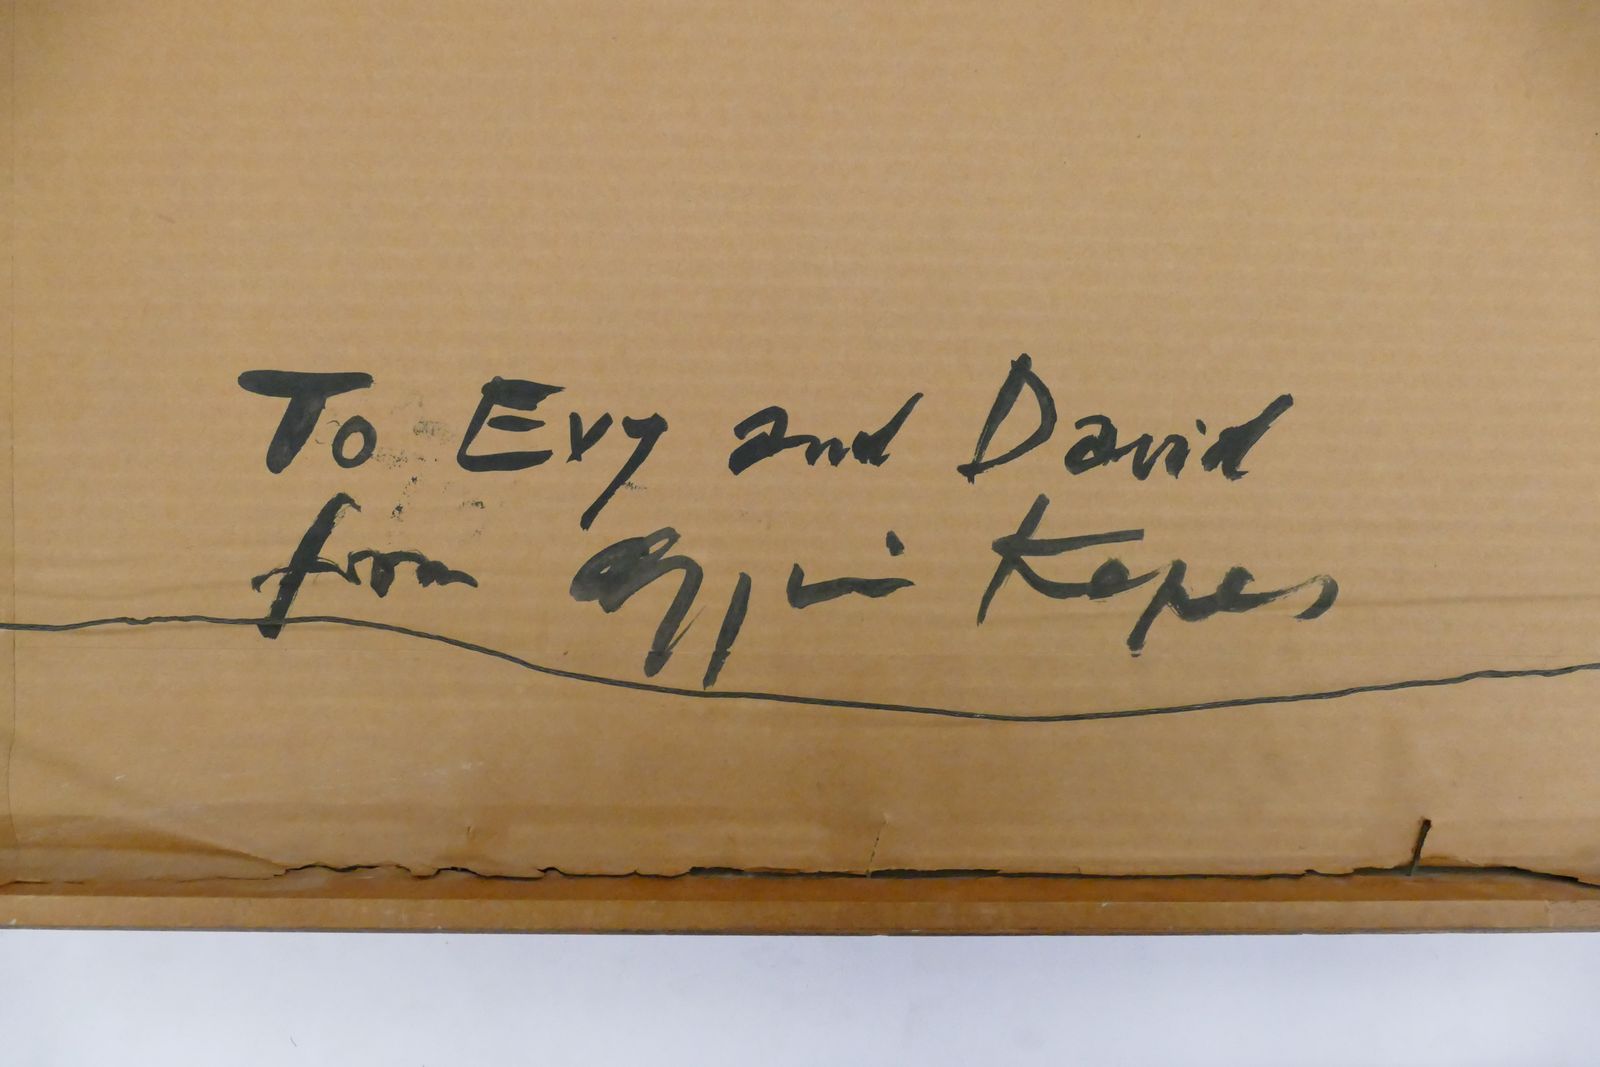 To Evy and David
from Kepes